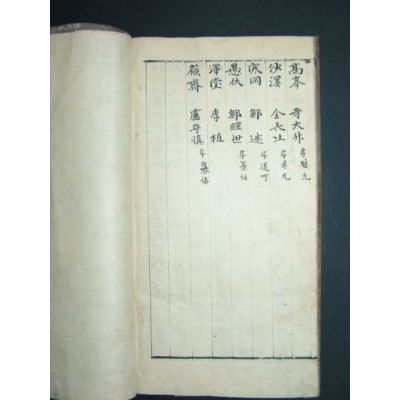 高峯 奇大升 字明彦
沙溪 金長生 字希元
寒岡 鄭逑 字道可
愚伏 鄭經世 字景任
澤堂 李植
蘇齋 盧守愼 字